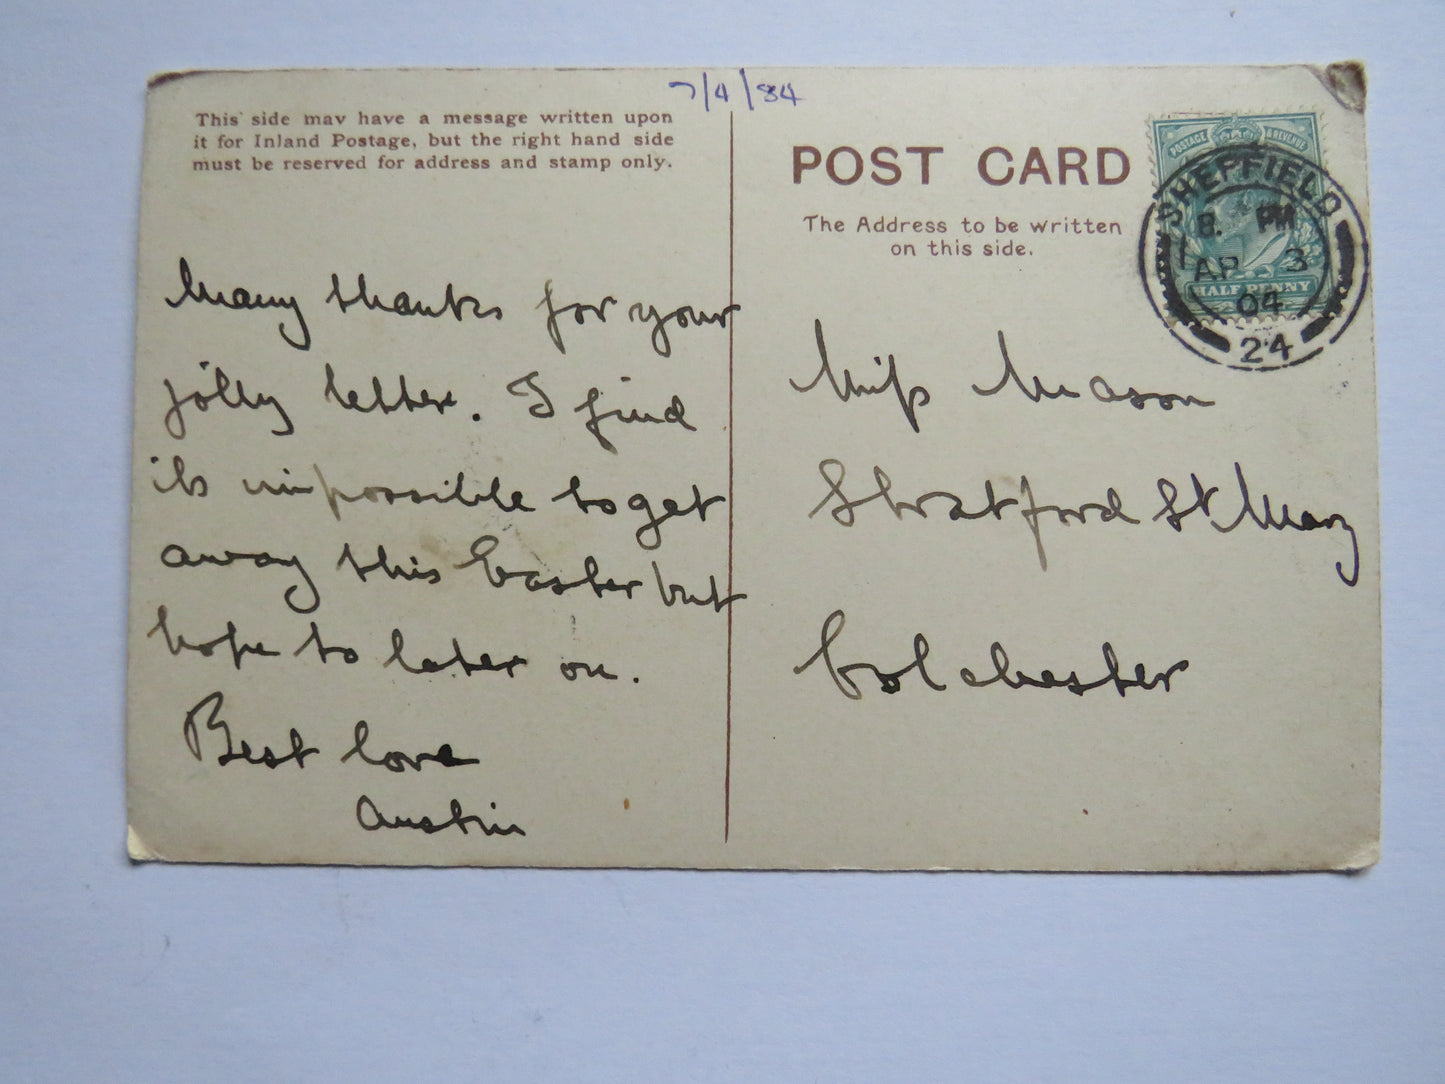 7/4/84
This side may have a message written upon
it for Inland Postage, but the right hand side
must be reserved for address and stamp only.
Many thanks for your
jolly letter. I find
it impossible to get
away this Easter but
hope to later on.
Best love
Austin
POST CARD
The Address to be written
on this side.
POSTAGE & REVENUE
HALF PENNY
SHEFFIELD
8. PM
AP 3
04
24
Miss Mason
Stratford St Mary
Colchester